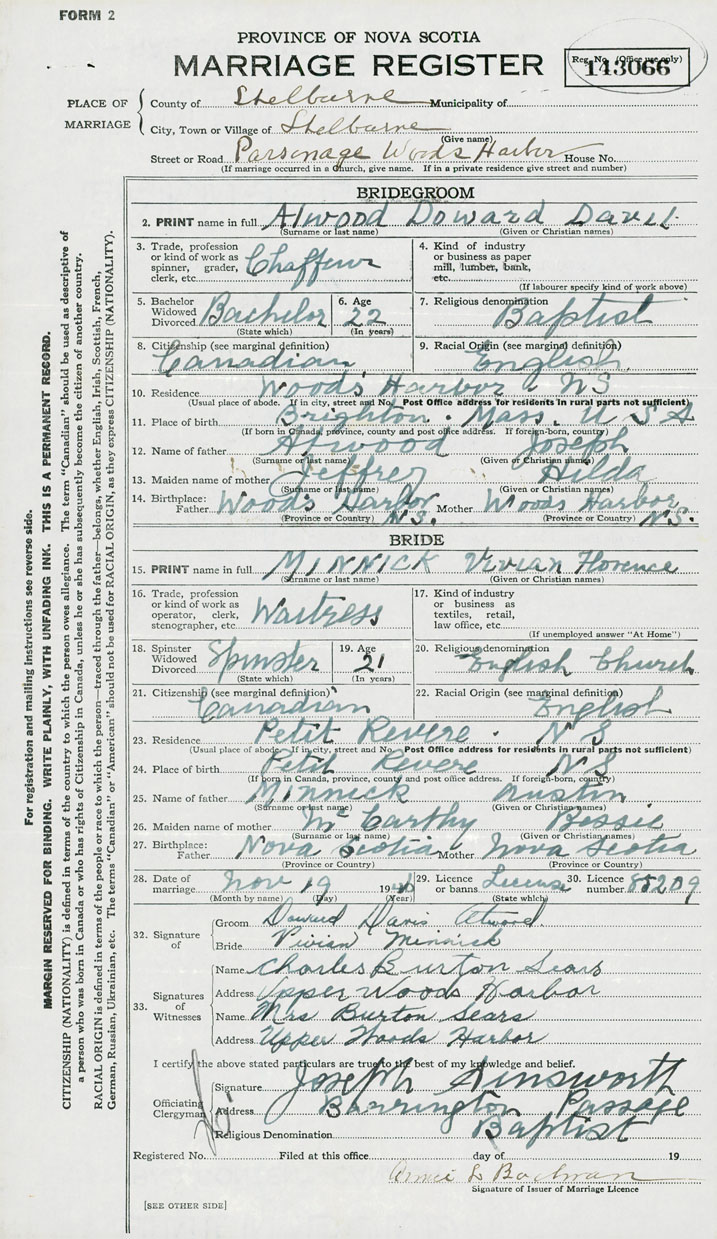 FORM 2
PROVINCE OF NOVA SCOTIA
MARRIAGE REGISTER
Reg. No. (Office use only)
143066
PLACE OF MARRIAGE
County of Shelburne Municipality of
City, Town or Village of Shelburne
(Give name)
Street or Road Parsonage Woods Harbor House No.
(If marriage occurred in a Church, give name. If in a private residence give street and number)
BRIDEGROOM
2. PRINT name in full Atwood Doward Davis
(Surname or last name) (Given or Christian names)
3. Trade, profession or kind of work as spinner, grader, clerk, etc. Chaffeur
4. Kind of industry or business as paper mill, lumber, bank, etc.
(If labourer specify kind of work above)
5. Bachelor Widowed Divorced Bachelor 6. Age 22 7. Religious denomination Baptist
(State which) (In years)
8. Citizenship (see marginal definition) Canadian 9. Racial Origin (see marginal definition) English
10. Residence Woods Harbor NS
(Usual place of abode. If in city, street and No. Post Office address for residents in rural parts not sufficient)
11. Place of birth Brighton. Mass. U S A
(If born in Canada, province, county and post office address. If foreign-born, country)
12. Name of father Atwood Joseph
(Surname or last name) (Given or Christian names)
13. Maiden name of mother Jeffrey Hilda
(Surname or last name) (Given or Christian names)
14. Birthplace: Father Woods Harbor N.S. Mother Woods Harbor N.S.
(Province or Country) (Province or Country)
BRIDE
15. PRINT name in full MINNICK Vivian Florence
(Surname or last name) (Given or Christian names)
16. Trade, profession or kind of work as operator, clerk, stenographer, etc. Waitress
17. Kind of industry or business as textiles, retail, law office, etc.
(If unemployed answer "At Home")
18. Spinster Widowed Divorced Spinster 19. Age 21 20. Religious denomination English Church
(State which) (In years)
21. Citizenship (see marginal definition) Canadian 22. Racial Origin (see marginal definition) English
23. Residence Petit Revere. N S
(Usual place of abode. If in city, street and No. Post Office address for residents in rural parts not sufficient)
24. Place of birth Petit Revere N S
(If born in Canada, province, county and post office address. If foreign-born, country)
25. Name of father Minnick Austin
(Surname or last name) (Given or Christian names)
26. Maiden name of mother McCarthy Bessie
(Surname or last name) (Given or Christian names)
27. Birthplace: Father Nova Scotia Mother Nova Scotia
(Province or Country) (Province or Country)
28. Date of marriage Nov 19 19 29. Licence or banns License 30. Licence number 85209
(Month by name) (Day) (Year) (State which)
32. Signature of
Groom Doward Davis Atwood
Bride Vivian Minnick
33. Signatures of Witnesses
Name Charles Burton Sears
Address Upper Woods Harbor
Name Mrs Burton Sears
Address Upper Woods Harbor
I certify the above stated particulars are true to the best of my knowledge and belief.
Officiating Clergyman
Signature Joseph Ainsworth
Address Barrington Passage
Religious Denomination Baptist
Registered No. Filed at this office day of 19
Signature of Issuer of Marriage Licence
[SEE OTHER SIDE]
For registration and mailing instructions see reverse side.
MARGIN RESERVED FOR BINDING. WRITE PLAINLY, WITH UNFADING INK. THIS IS A PERMANENT RECORD.
CITIZENSHIP (NATIONALITY) is defined in terms of the country to which the person owes allegiance. The term "Canadian" should be used as descriptive of
a person who was born in Canada or who has rights of Citizenship in Canada, unless he or she has subsequently become the citizen of another country.
RACIAL ORIGIN is defined in terms of the people or race to which the person—traced through the father—belongs, whether English, Irish, Scottish, French,
German, Russian, Ukrainian, etc. The terms "Canadian" or "American" should not be used for RACIAL ORIGIN, as they express CITIZENSHIP (NATIONALITY).